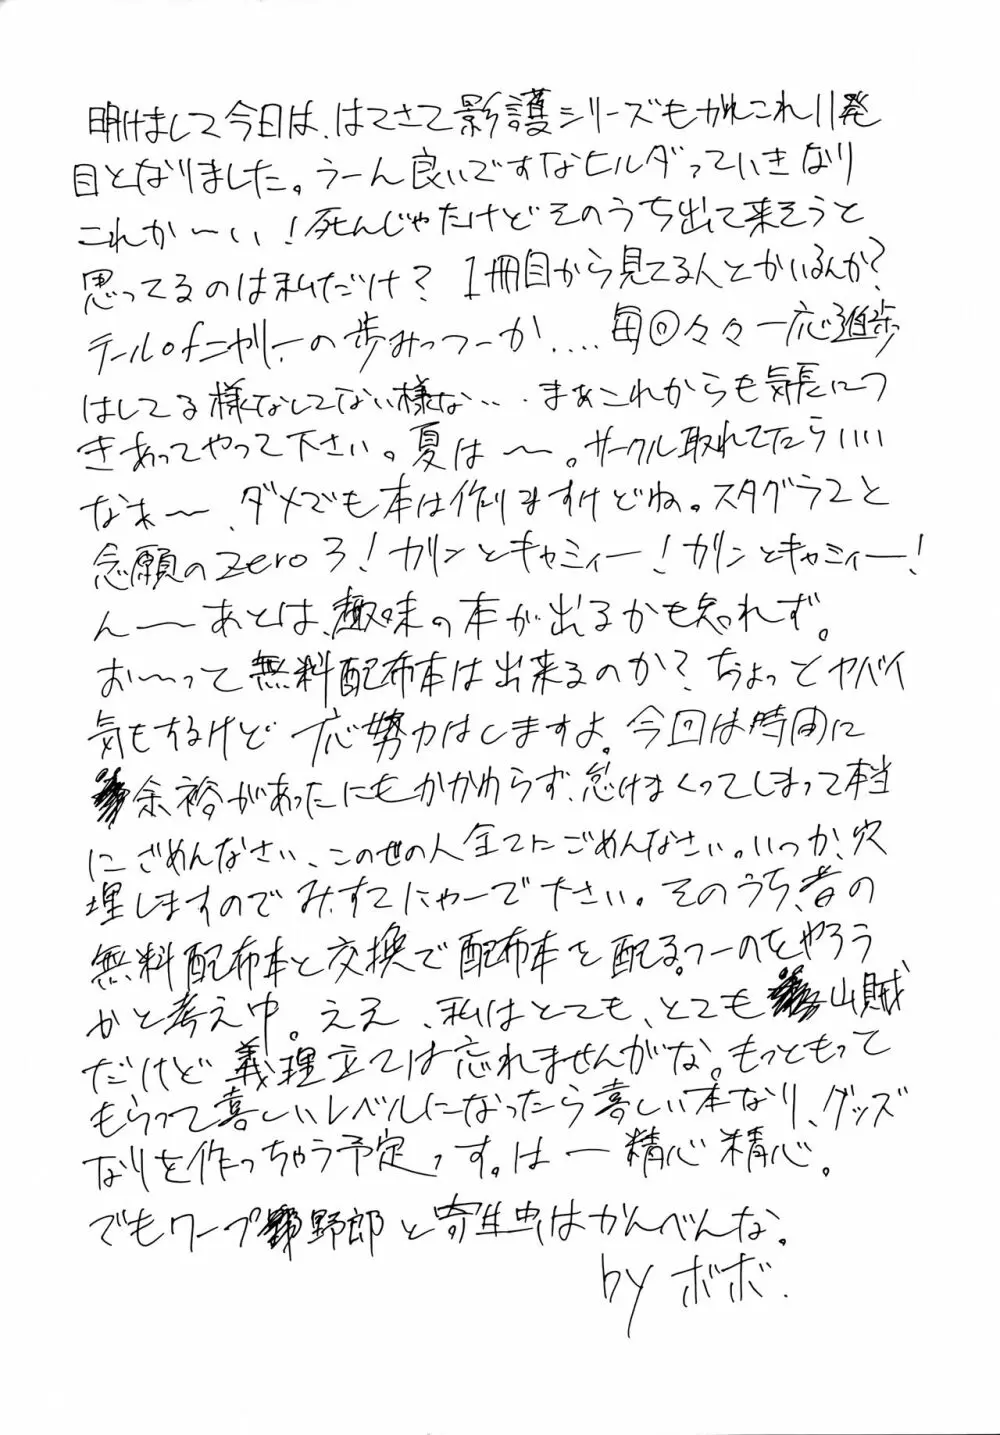 明けまして今日は、はてさて影護シリーズもかれこれ11発
目となりました。うーん良いですなヒルダっていきなり
これか〜い！死んじゃたけどそのうち出て来そうと
思ってるのは私だけ？1冊目から見てる人とかいるんか？
テールofニャリーの歩みっつーか....毎回々々一応進歩
はしてる様なしてない様な…．まあこれからも気長につ
きあってやって下さい。夏は〜。サークル取れてたらいい
なぁ〜、ダメでも本は作りますけどね。スタグラ2と
念願のzero3！カリンとキャミィー！カリンとキャミィー！
ん〜あとは、趣味の本が出るかも知れず。
お〜って無料配布本は出来るのか？ちょっとヤバイ
気もするけど一応努力はしますよ。今回は時間に
余裕があったにもかかわらず、怠けまくってしまって本当
にごめんなさい、この世の人全てにごめんなさい。いつか、穴
埋しますのでみすてにゃーで下さい。そのうち、昔の
無料配布本と交換で配布本を配るっつーのをやろう
かと考え中。ええ、私はとても、とても山賊
だけど義理立ては忘れませんがな。もっともって
もらって喜しいレベルになったら喜しい本なり、グッズ
なりを作っちゃう予定っす。は一精心精心。
でもワープ野郎と寄生虫はかんべんな。
by ボボ．